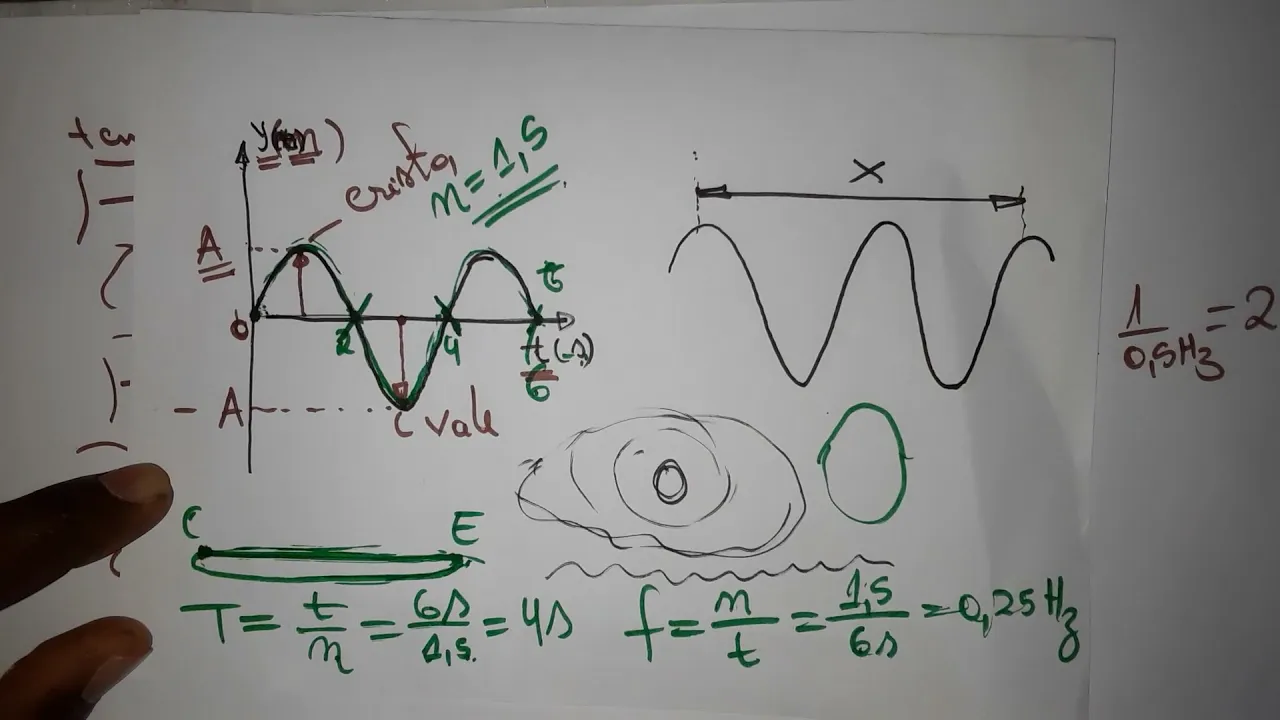 y(m)
crista
n = 1,5
A
0
2
4
6
t(s)
6
- A
vale
x
1/0,5Hz = 2
C E
T = t/n = 6s/1,5 = 4s
f = n/t = 1,5/6s = 0,25Hz